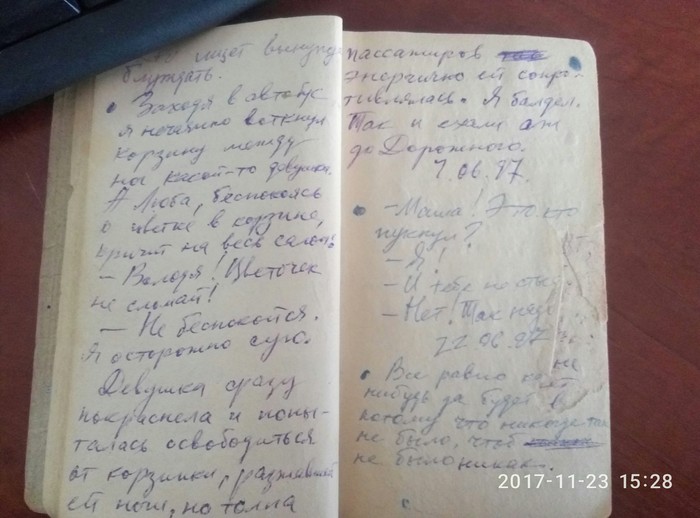 ищет
блуждать.
Заходя в автобус
я нечаянно воткнул
корзину между
ног какой-то девушки.
А Люба, беспокоясь
о цветке в корзине,
кричит на весь салон:
- Володя! Цветочек
не сломай!
- Не беспокойся.
Я осторожно сую.
Девушка сразу
покраснела и попы-
талась освободиться
от корзинки,
ей ноги, но толпа
пассажиров
энергично ей сопро-
тивлялась. Я балдел.
Так и ехали аж
до Дорожного.
7.06.87.
- Маша! Это кто
пукнул?
- Я!
- И тебе не
- Нет! Так надо
22.06.87
Все равно
нибудь да будет
потому что никогда так
не было, чтоб
не было никак.
2017-11-23 15:28